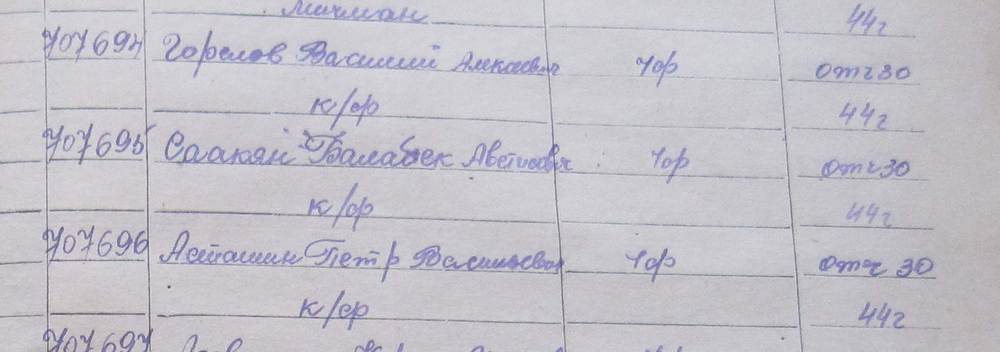 мичман 44г
707694 Горелов Василий Алексеевич Чор отч 30
к/ф 44г
707695 Саакян Балабек Аветисович Чор отч 30
к/ф 44г
707696 Асташин Петр Васильевич Чор отч 30
к/ф 44г
707697